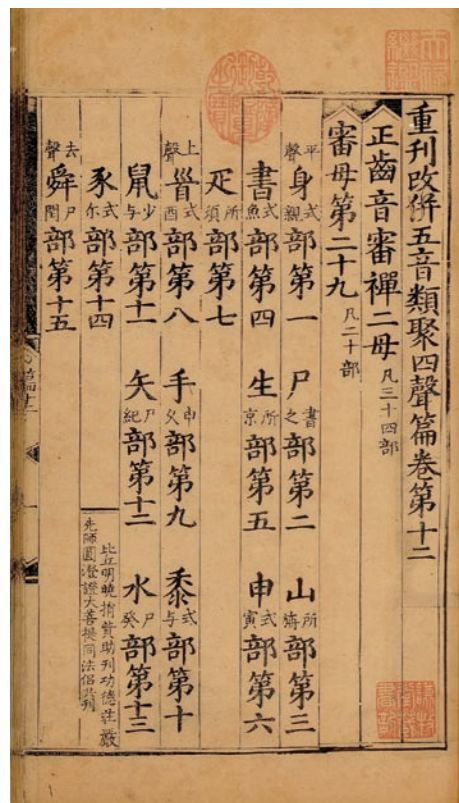 重刊改併五音類聚四聲篇卷第十二
正齒音審禪二母凡三十四部
審母第二十九凡二十部
平聲身式親部第一 尸書之部第二 山所𫮃部第三
書式魚部第四 生所京部第五 申式寅部第六
疋所須部第七
上聲𩠐式酉部第八 手申久部第九 黍式与部第十
鼠少与部第十一 矢尸紀部第十二 水尸癸部第十三
豕式尔部第十四
去聲舜尸閏部第十五
比丘明曉捐貲助刊功德莊嚴
先師圓澄證大菩提同法侶共刊
篇十二